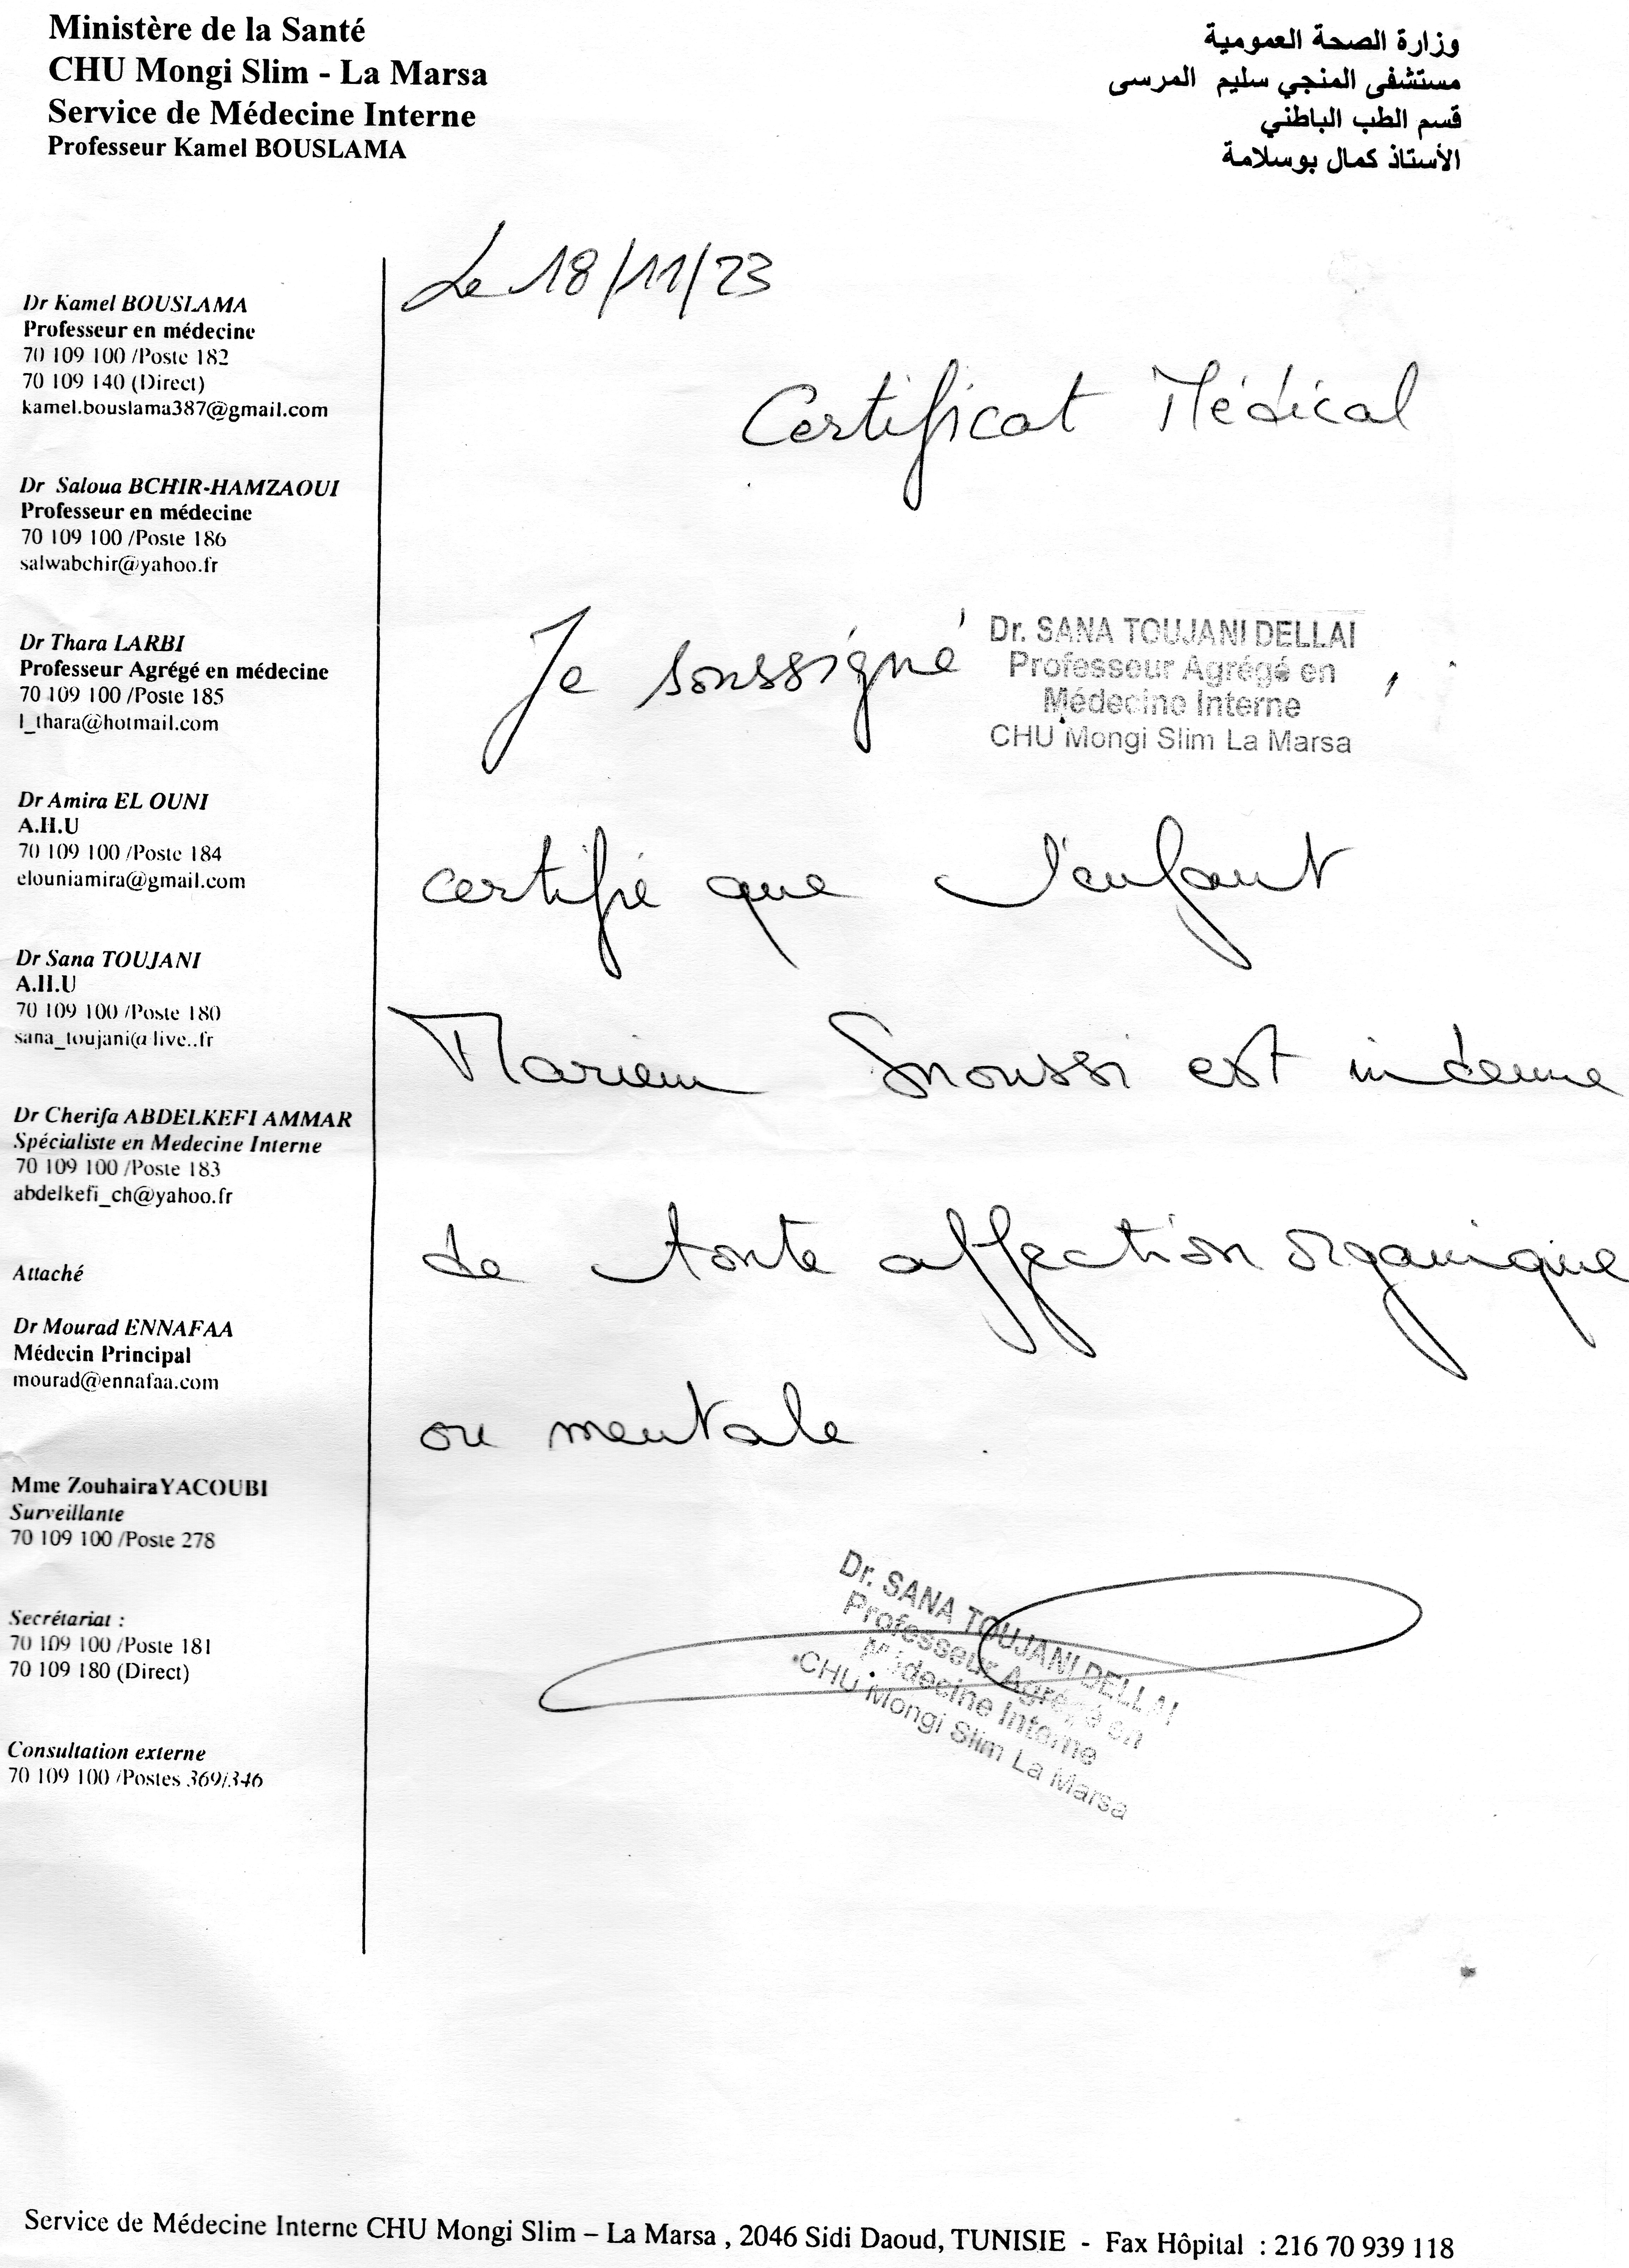 Ministère de la Santé
CHU Mongi Slim - La Marsa
Service de Médecine Interne
Professeur Kamel BOUSLAMA
وزارة الصحة العمومية
مستشفى المنجي سليم المرسى
قسم الطب الباطني
الأستاذ كمال بوسلامة
Dr Kamel BOUSLAMA
Professeur en médecine
70 109 100 /Poste 182
70 109 140 (Direct)
kamel.bouslama387@gmail.com
Dr Saloua BCHIR-HAMZAOUI
Professeur en médecine
70 109 100 /Poste 186
salwabchir@yahoo.fr
Dr Thara LARBI
Professeur Agrégé en médecine
70 109 100 /Poste 185
l_thara@hotmail.com
Dr Amira EL OUNI
A.H.U
70 109 100 /Poste 184
elouniamira@gmail.com
Dr Sana TOUJANI
A.H.U
70 109 100 /Poste 180
sana_toujani@live..fr
Dr Cherifa ABDELKEFI AMMAR
Spécialiste en Medecine Interne
70 109 100 /Poste 183
abdelkefi_ch@yahoo.fr
Attaché
Dr Mourad ENNAFAA
Médecin Principal
mourad@ennafaa.com
Mme Zouhaira YACOUBI
Surveillante
70 109 100 /Poste 278
Secrétariat :
70 109 100 /Poste 181
70 109 180 (Direct)
Consultation externe
70 109 100 /Postes 369/346
Le 18/11/23
Certificat Médical
Je soussigné
Dr. SANA TOUJANI DELLAI
Professeur Agrégé en
Médecine Interne
CHU Mongi Slim La Marsa
,
certifie que l'enfant
Mariem Snoussi est indemne
de toute affection organique
ou mentale
Dr. SANA TOUJANI DELLAI
Professeur Agrégé en
Médecine Interne
CHU Mongi Slim La Marsa
Service de Médecine Interne CHU Mongi Slim – La Marsa , 2046 Sidi Daoud, TUNISIE - Fax Hôpital : 216 70 939 118